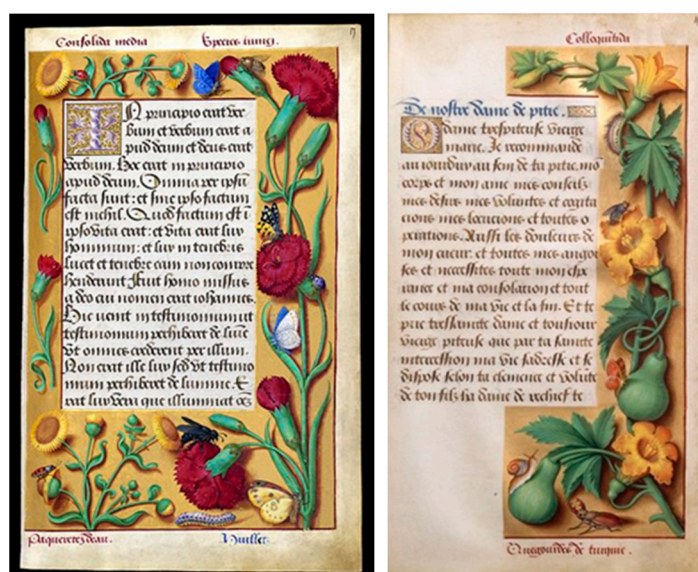 Consolida media
Species iungi.
IN principio erat ver
bum et verbum erat a
pud deum et deus erat
verbum. Hoc erat in principio
apud deum. Omnia per ipsū
facta sunt: et sine ipso factum
est nichil. Quod factum est ī
ipso vita erat: et vita erat lux
hominum: et lux in tenebris
lucet et tenebre eam non compre
henderunt. Fuit homo missus
a deo cui nomen erat iohannes.
Hic venit in testimonium ut
testimonium perhiberet de lumīe
Ut omnes crederent per illum.
Non erat ille lux sed ut testimo
nium perhiberet de lumine. E
rat lux vera que illuminat oēs
Paqueretes deau.
Colloquintida
De nostre dame de pitie.
O dame trespiteuse vierge
marie. Je recommande
au iourduy au sein de ta pitie. mō
corps et mon ame mes conseilz
mes desirs mes volūtes et cogita
cions mes locucions et toutes o
peracions. Aussi les douleurs de
mon cueur. et toutes mes angoi
ses et necessites toute mon espe
rance et ma consolacion et tout
le cours de ma vie et la fin. Et te
prie tressaincte dame et tousiour
vierge piteuse que par ta saincte
intercession ma vie sadresse et se
dispose selon ta clemence et volūte
de ton filz ha dame de rechief te
Quegourdes de turquie.